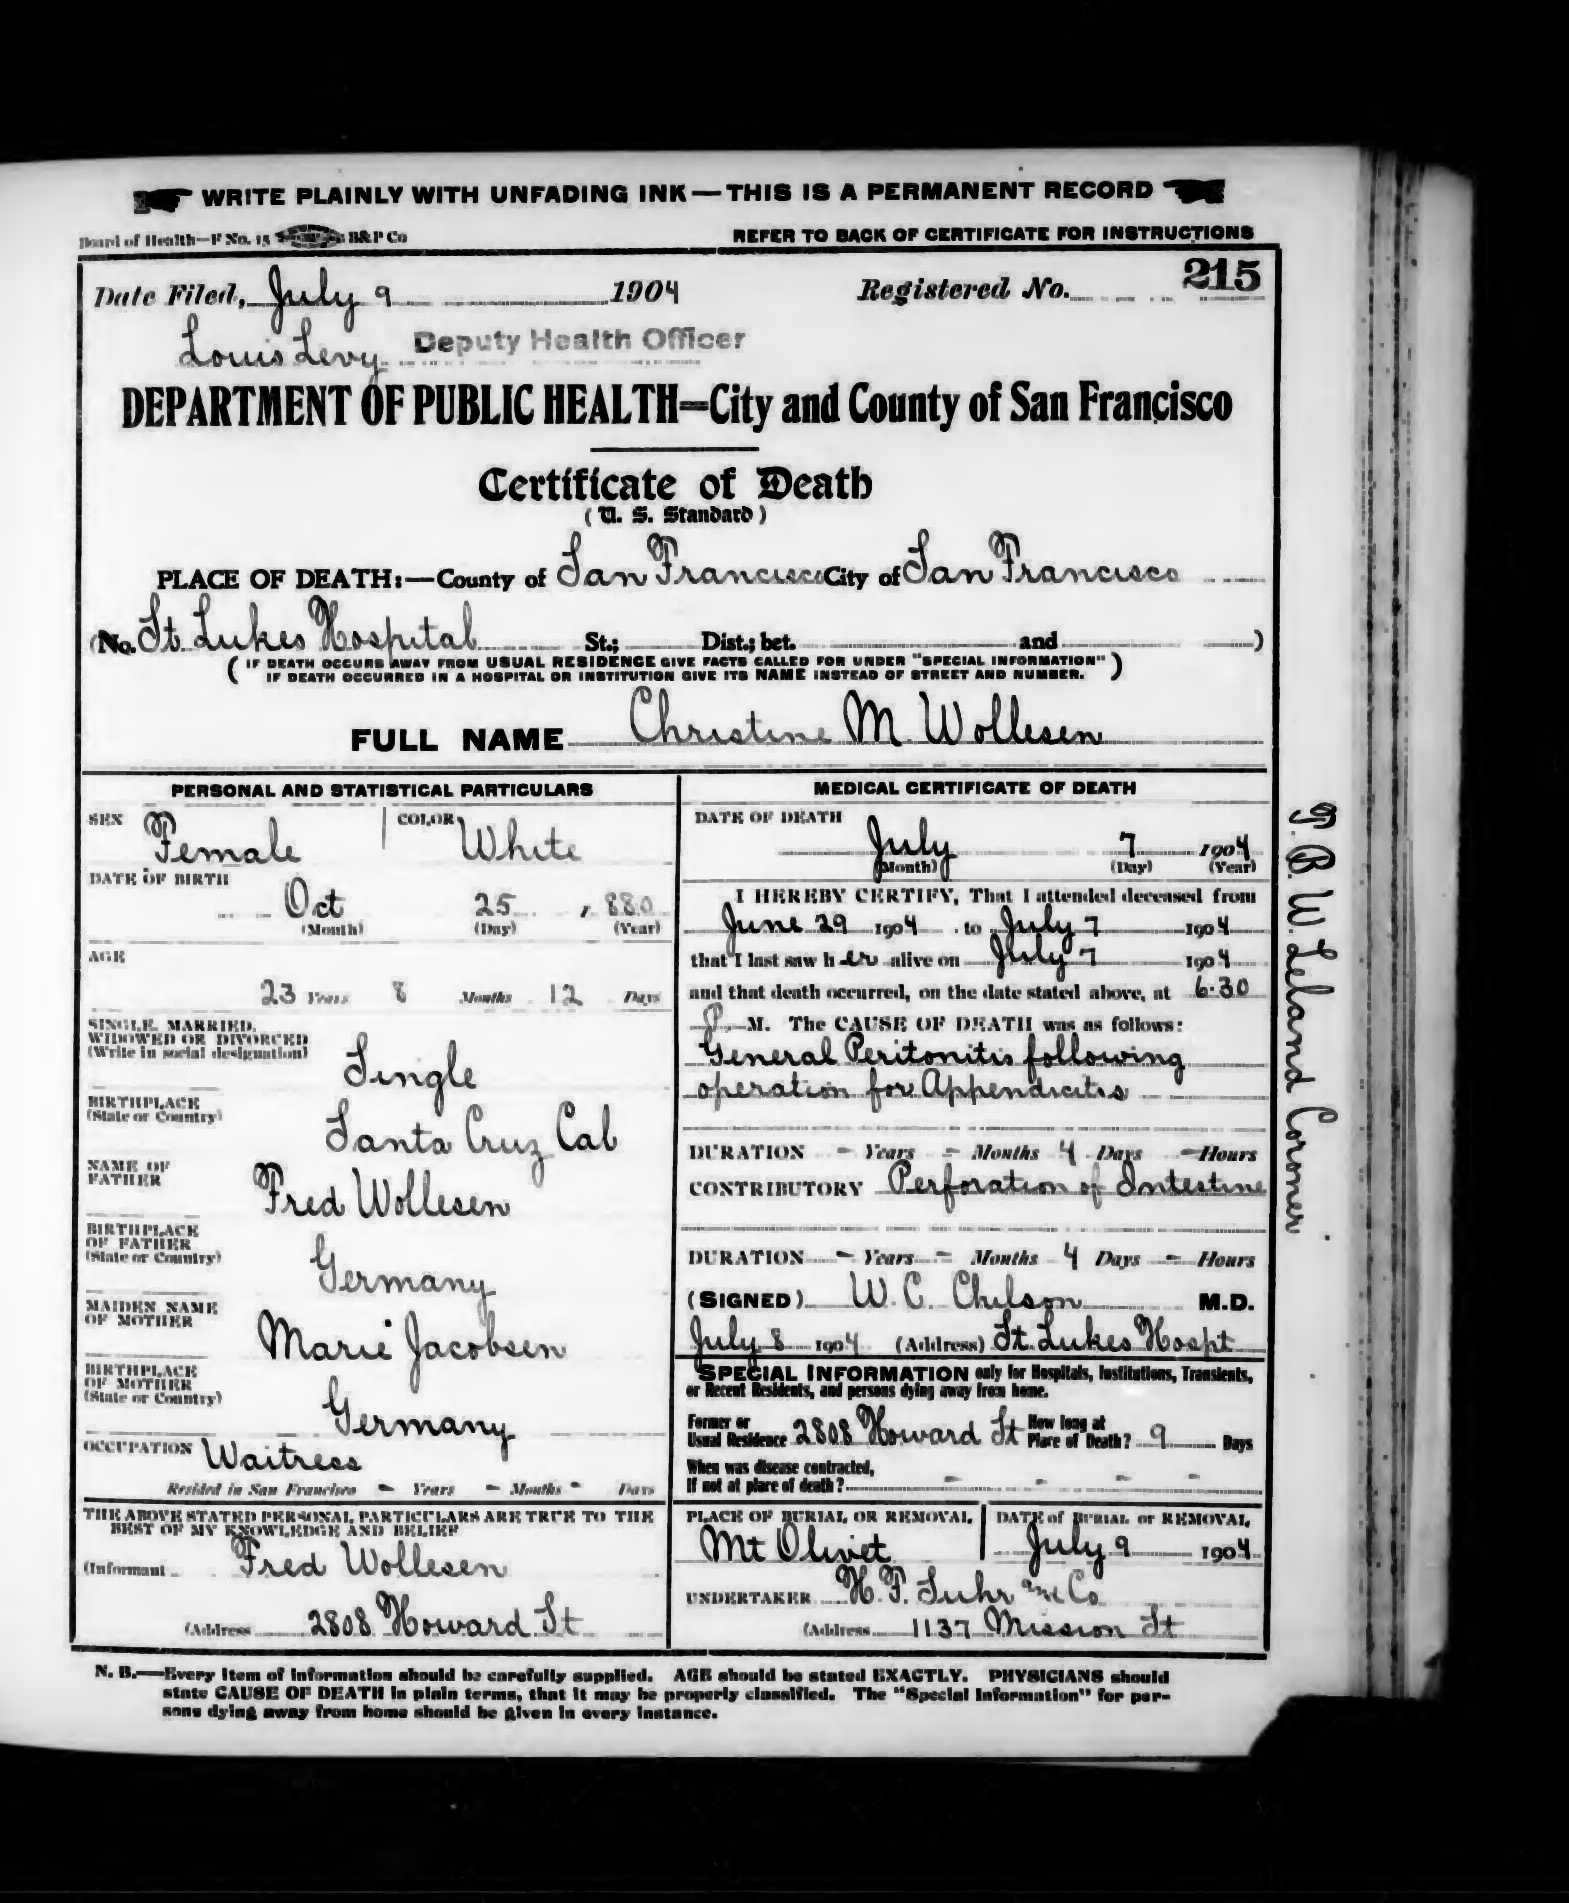 WRITE PLAINLY WITH UNFADING INK — THIS IS A PERMANENT RECORD
Board of Health—F No. 15 B&P Co
REFER TO BACK OF CERTIFICATE FOR INSTRUCTIONS
Date Filed, July 9 1904 Registered No. 215
Louis Levy Deputy Health Officer
DEPARTMENT OF PUBLIC HEALTH=City and County of San Francisco
Certificate of Death
( U. S. Standard )
PLACE OF DEATH:—County of San Francisco City of San Francisco
(No. St. Lukes Hospital St.; Dist.; bet. and )
( IF DEATH OCCURS AWAY FROM USUAL RESIDENCE GIVE FACTS CALLED FOR UNDER "SPECIAL INFORMATION"
IF DEATH OCCURRED IN A HOSPITAL OR INSTITUTION GIVE ITS NAME INSTEAD OF STREET AND NUMBER. )
FULL NAME Christine M. Wollesen
PERSONAL AND STATISTICAL PARTICULARS
SEX Female COLOR White
DATE OF BIRTH
Oct 25, 880
(Month) (Day) (Year)
AGE
23 Years 8 Months 12 Days
SINGLE, MARRIED,
WIDOWED OR DIVORCED
(Write in social designation)
Single
BIRTHPLACE
(State or Country)
Santa Cruz Cal
NAME OF
FATHER
Fred Wollesen
BIRTHPLACE
OF FATHER
(State or Country)
Germany
MAIDEN NAME
OF MOTHER
Marie Jacobsen
BIRTHPLACE
OF MOTHER
(State or Country)
Germany
OCCUPATION Waitress
Resided in San Francisco - Years - Months - Days
THE ABOVE STATED PERSONAL PARTICULARS ARE TRUE TO THE
BEST OF MY KNOWLEDGE AND BELIEF
(Informant Fred Wollesen
(Address 2808 Howard St
MEDICAL CERTIFICATE OF DEATH
DATE OF DEATH
July 7 1904
(Month) (Day) (Year)
I HEREBY CERTIFY, That I attended deceased from
June 29 1904 to July 7 1904
that I last saw h er alive on July 7 1904
and that death occurred, on the date stated above, at 6.30
P. M. The CAUSE OF DEATH was as follows:
General Peritonitis following
operation for Appendicitis
DURATION - Years - Months 4 Days - Hours
CONTRIBUTORY Perforation of Intestine
DURATION - Years - Months 4 Days - Hours
(SIGNED) W. C. Chilson M.D.
July 8 1904 (Address) St. Lukes Hospt
SPECIAL INFORMATION only for Hospitals, Institutions, Transients,
or Recent Residents, and persons dying away from home.
Former or
Usual Residence 2808 Howard St
How long at
Place of Death? 9 Days
When was disease contracted,
If not at place of death? - - - -
PLACE OF BURIAL OR REMOVAL
Mt Olivet
DATE of BURIAL or REMOVAL
July 9 1904
UNDERTAKER H. F. Suhr Co
(Address 1137 Mission St
N. B.—Every item of information should be carefully supplied. AGE should be stated EXACTLY. PHYSICIANS should
state CAUSE OF DEATH in plain terms, that it may be properly classified. The "Special Information" for per-
sons dying away from home should be given in every instance.
T. B. W. Leland Coroner.